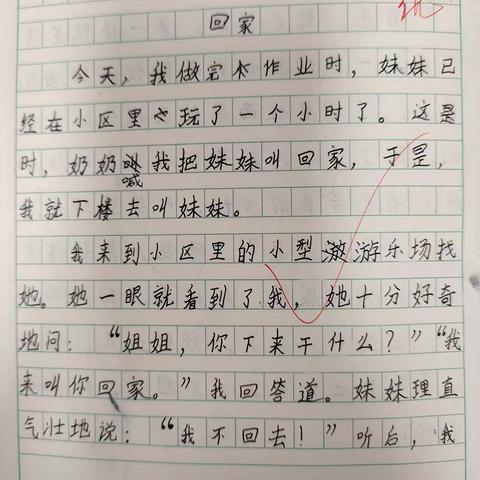 回家
今天，我做完作业时，妹妹已
经在小区里玩了一个小时了。这是
时，奶奶喊我把妹妹叫回家，于是，
我就下楼去叫妹妹。
我来到小区里的小型游乐场找
她。她一眼就看到了我，她十分好奇
地问：“姐姐，你下来干什么？”“我
来叫你回家。”我回答道。妹妹理直
气壮地说：“我不回去！”听后，我